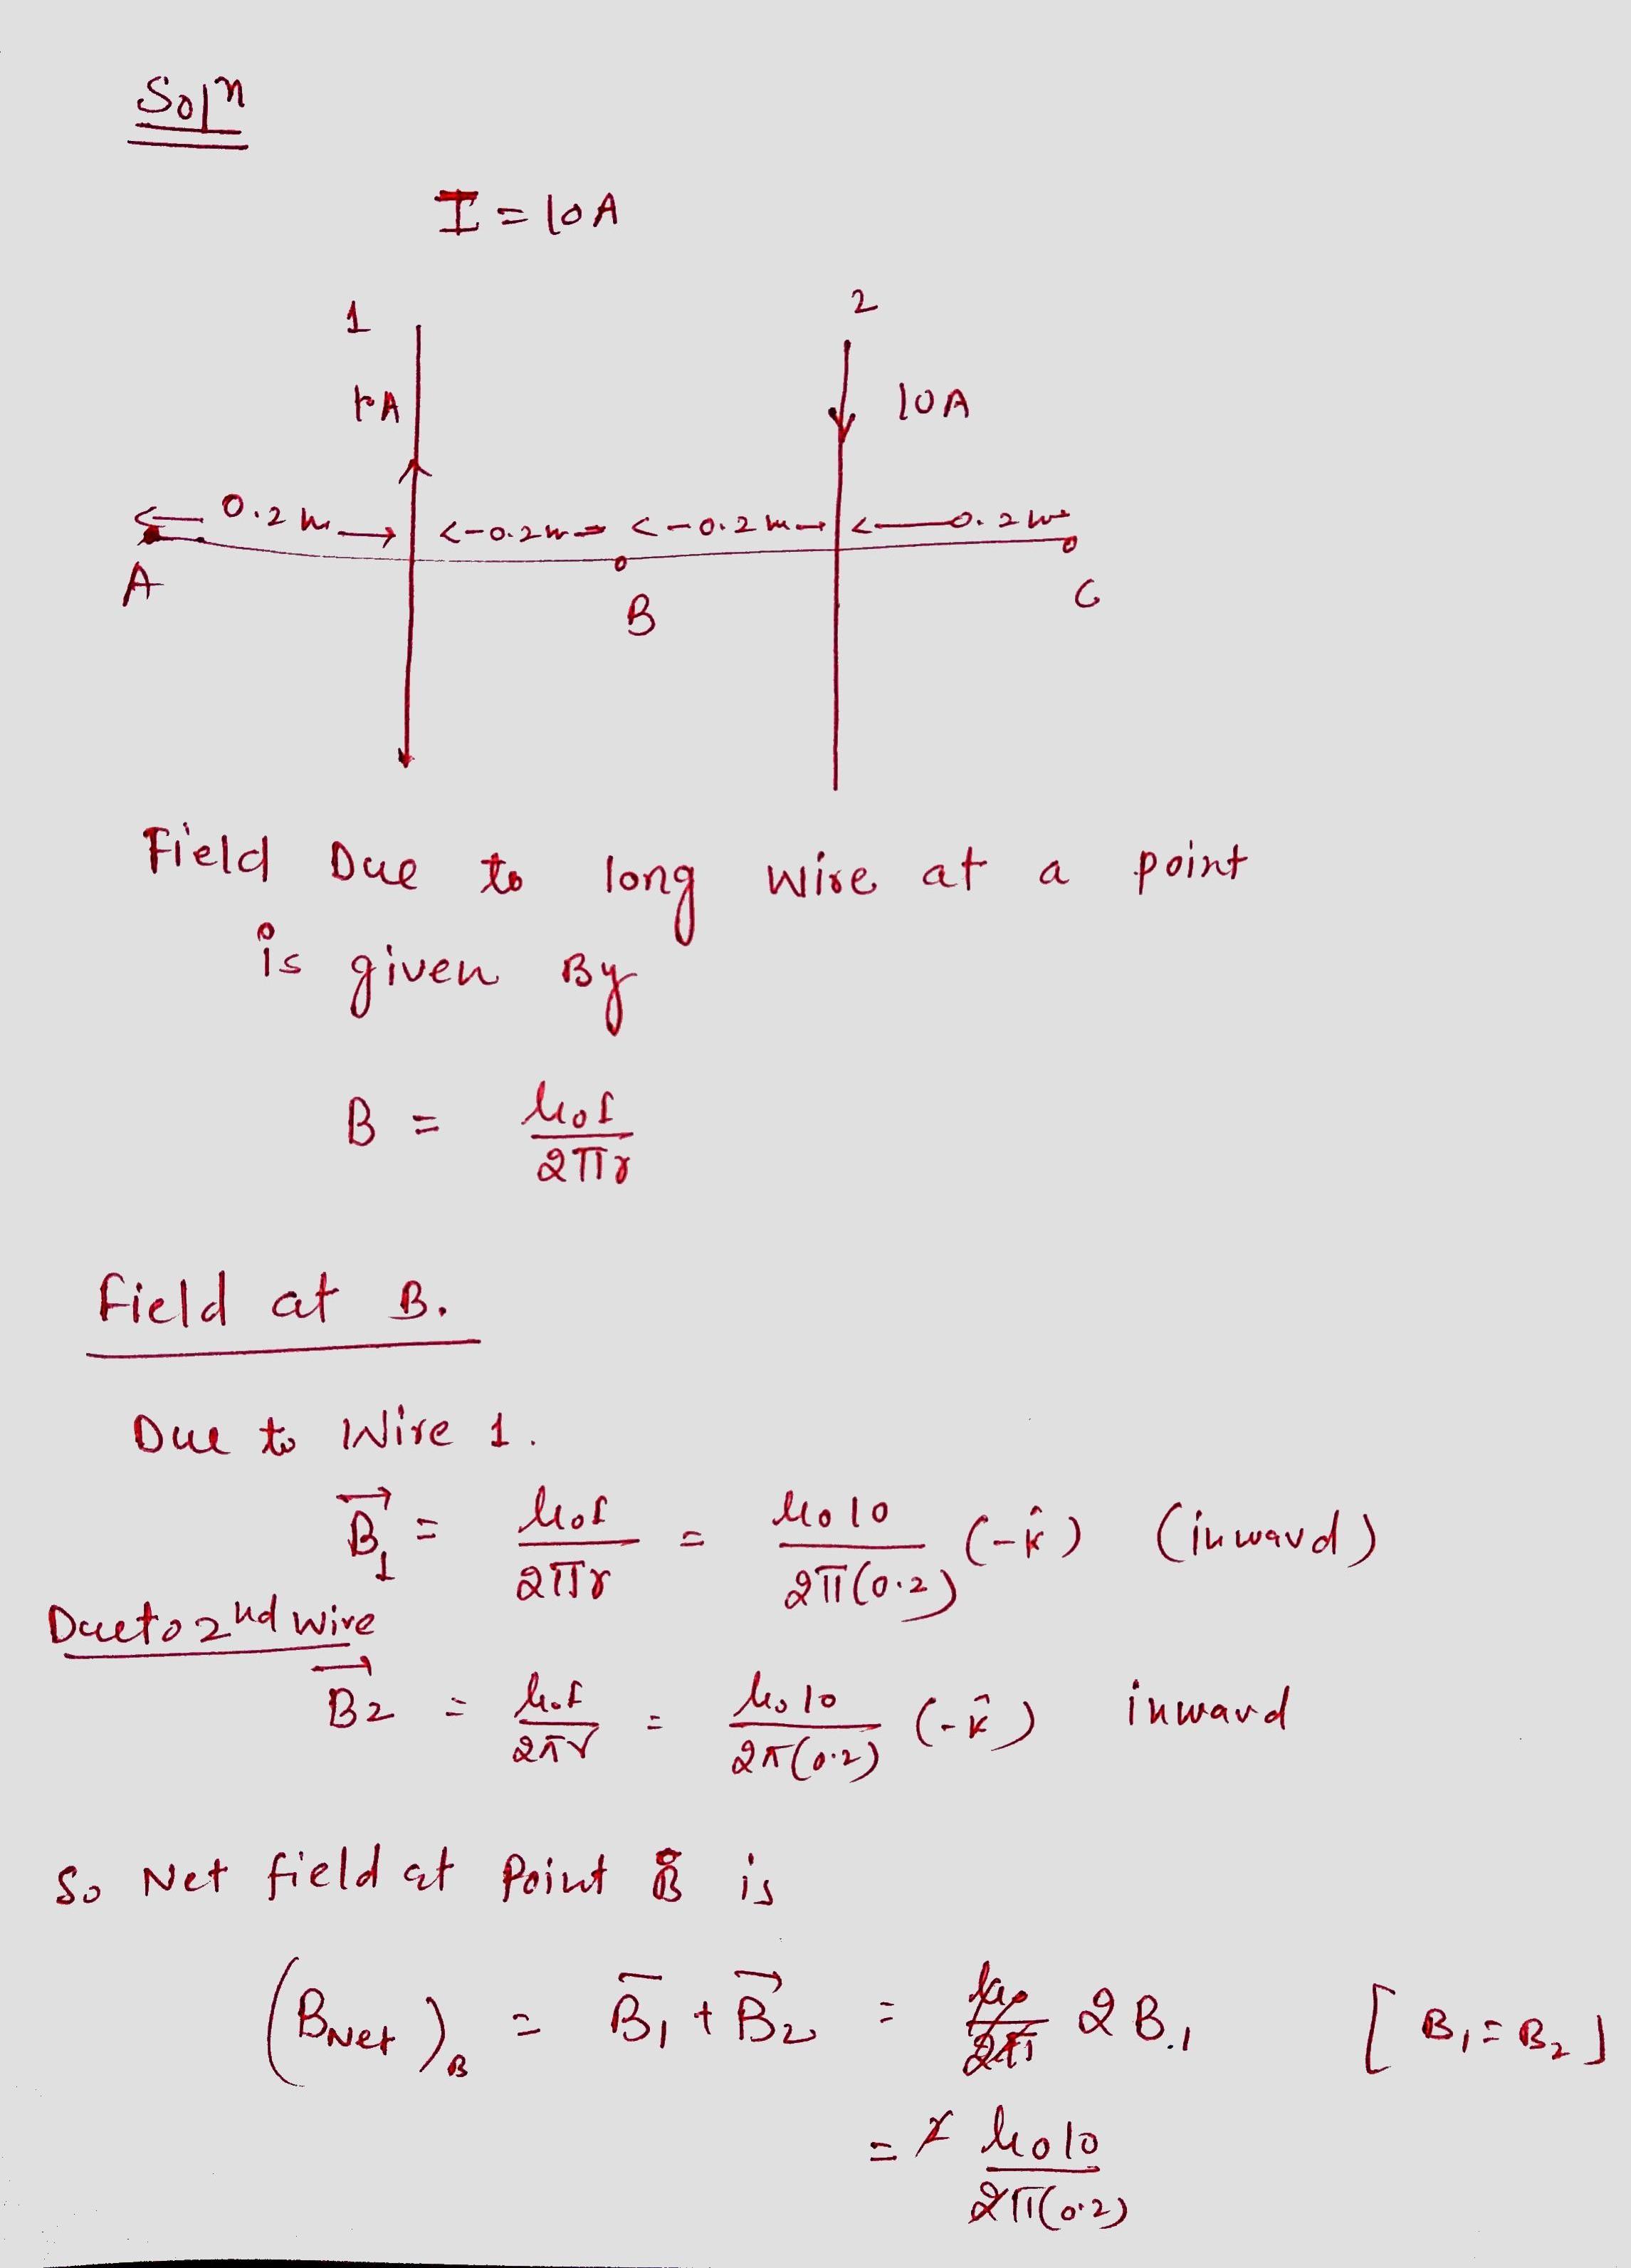 Solⁿ
I = 10A
1 2
10A 10A
0.2m 0.2m 0.2m 0.2m
A B C
Field Due to long wire at a point
is given By
B = μ₀I/2πr
Field at B.
Due to Wire 1.
B⃗₁ = μ₀I/2πr = μ₀10/2π(0.2) (-k̂) (inward)
Due to 2nd wire
B⃗2 = μ₀I/2πr = μ₀10/2π(0.2) (-k̂) inward
So Net field at Point B is
(BNet)B = B⃗₁ + B⃗₂ = 2B₁ [B₁ = B₂]
= 2 μ₀10/2π(0.2)